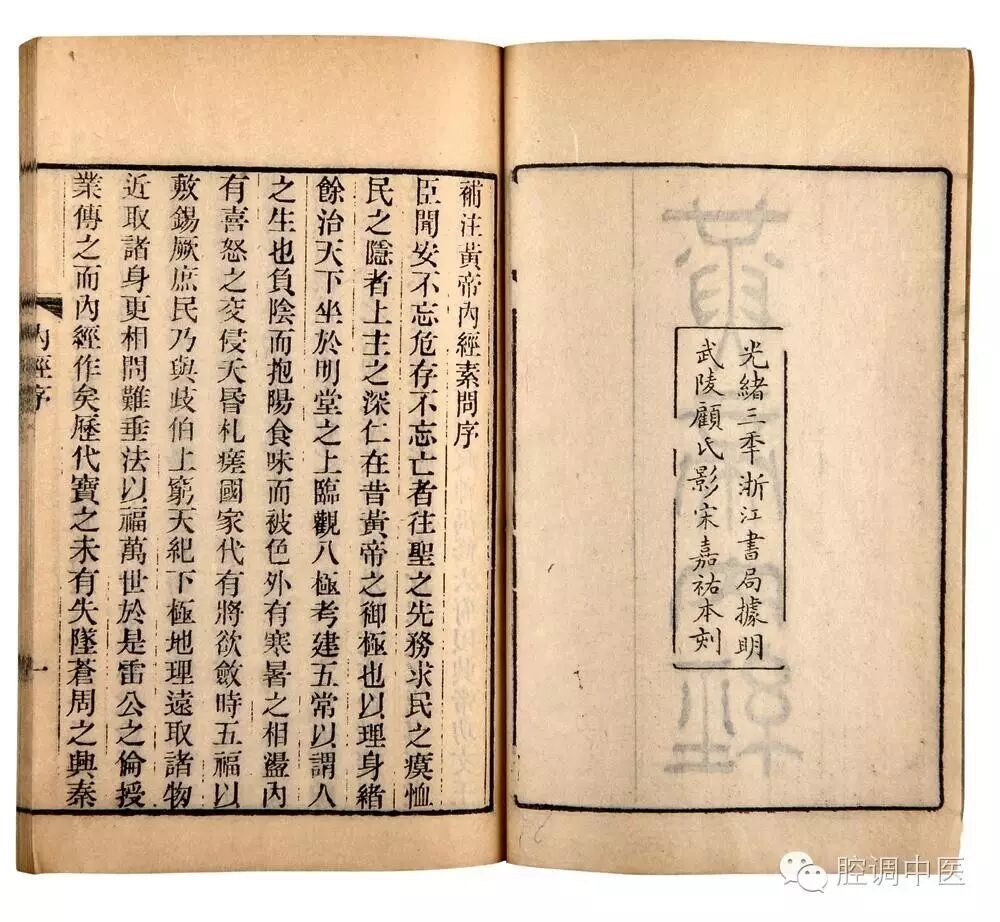 光緒三秊浙江書局據明
武陵顧氏影宋嘉祐本刻
補注黃帝內經素問序
臣聞安不忘危存不忘亡者往聖之先務求民之瘼恤
民之隱者上主之深仁在昔黃帝之御極也以理身緒
餘治天下坐於明堂之上臨觀八極考建五常以謂人
之生也負陰而抱陽食味而被色外有寒暑之相盪內
有喜怒之交侵夭昬札瘥國家代有將欲斂時五福以
敷錫厥庶民乃與歧伯上窮天紀下極地理遠取諸物
近取諸身更相問難垂法以福萬世於是雷公之倫授
業傳之而內經作矣歷代寶之未有失墜蒼周之興秦
內經序
一
腔调中医